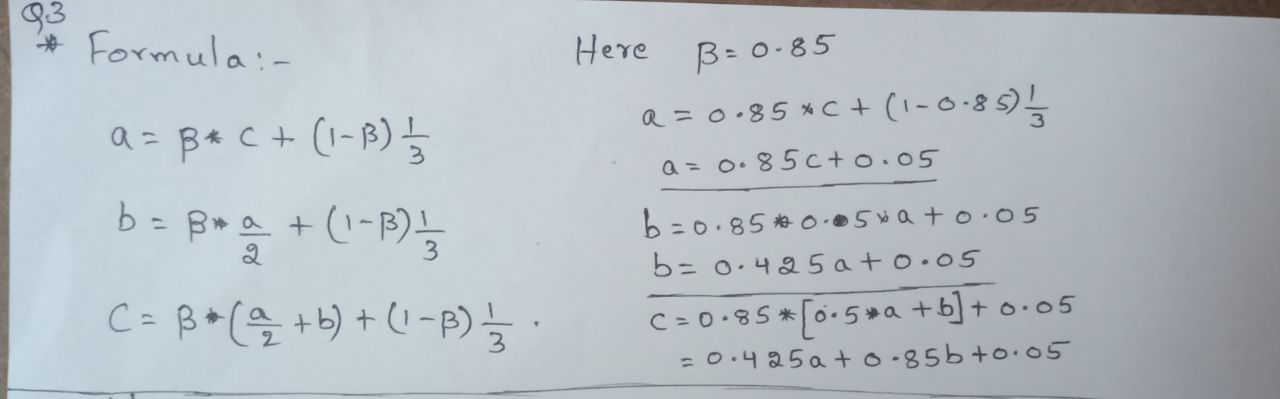 Q3
* Formula:-
a = β * c + (1-β) 1/3
b = β * a/2 + (1-β) 1/3
C = β * (a/2 + b) + (1-β) 1/3 .
Here β = 0.85
a = 0.85 * c + (1-0.85) 1/3
a = 0.85c + 0.05
b = 0.85 * 0.5 * a + 0.05
b = 0.425a + 0.05
c = 0.85 * [0.5 * a + b] + 0.05
= 0.425a + 0.85b + 0.05